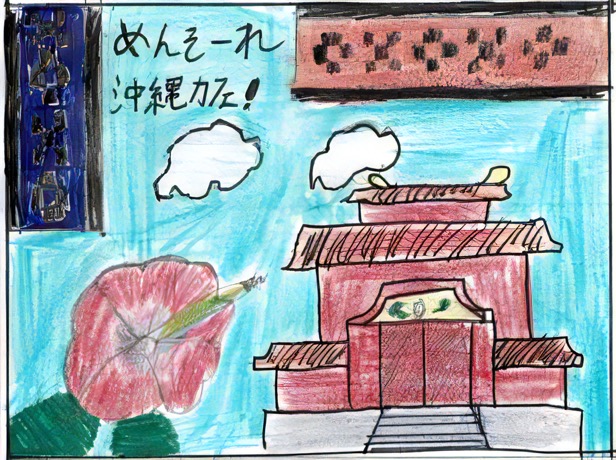 めんそーれ
沖縄カフェ!